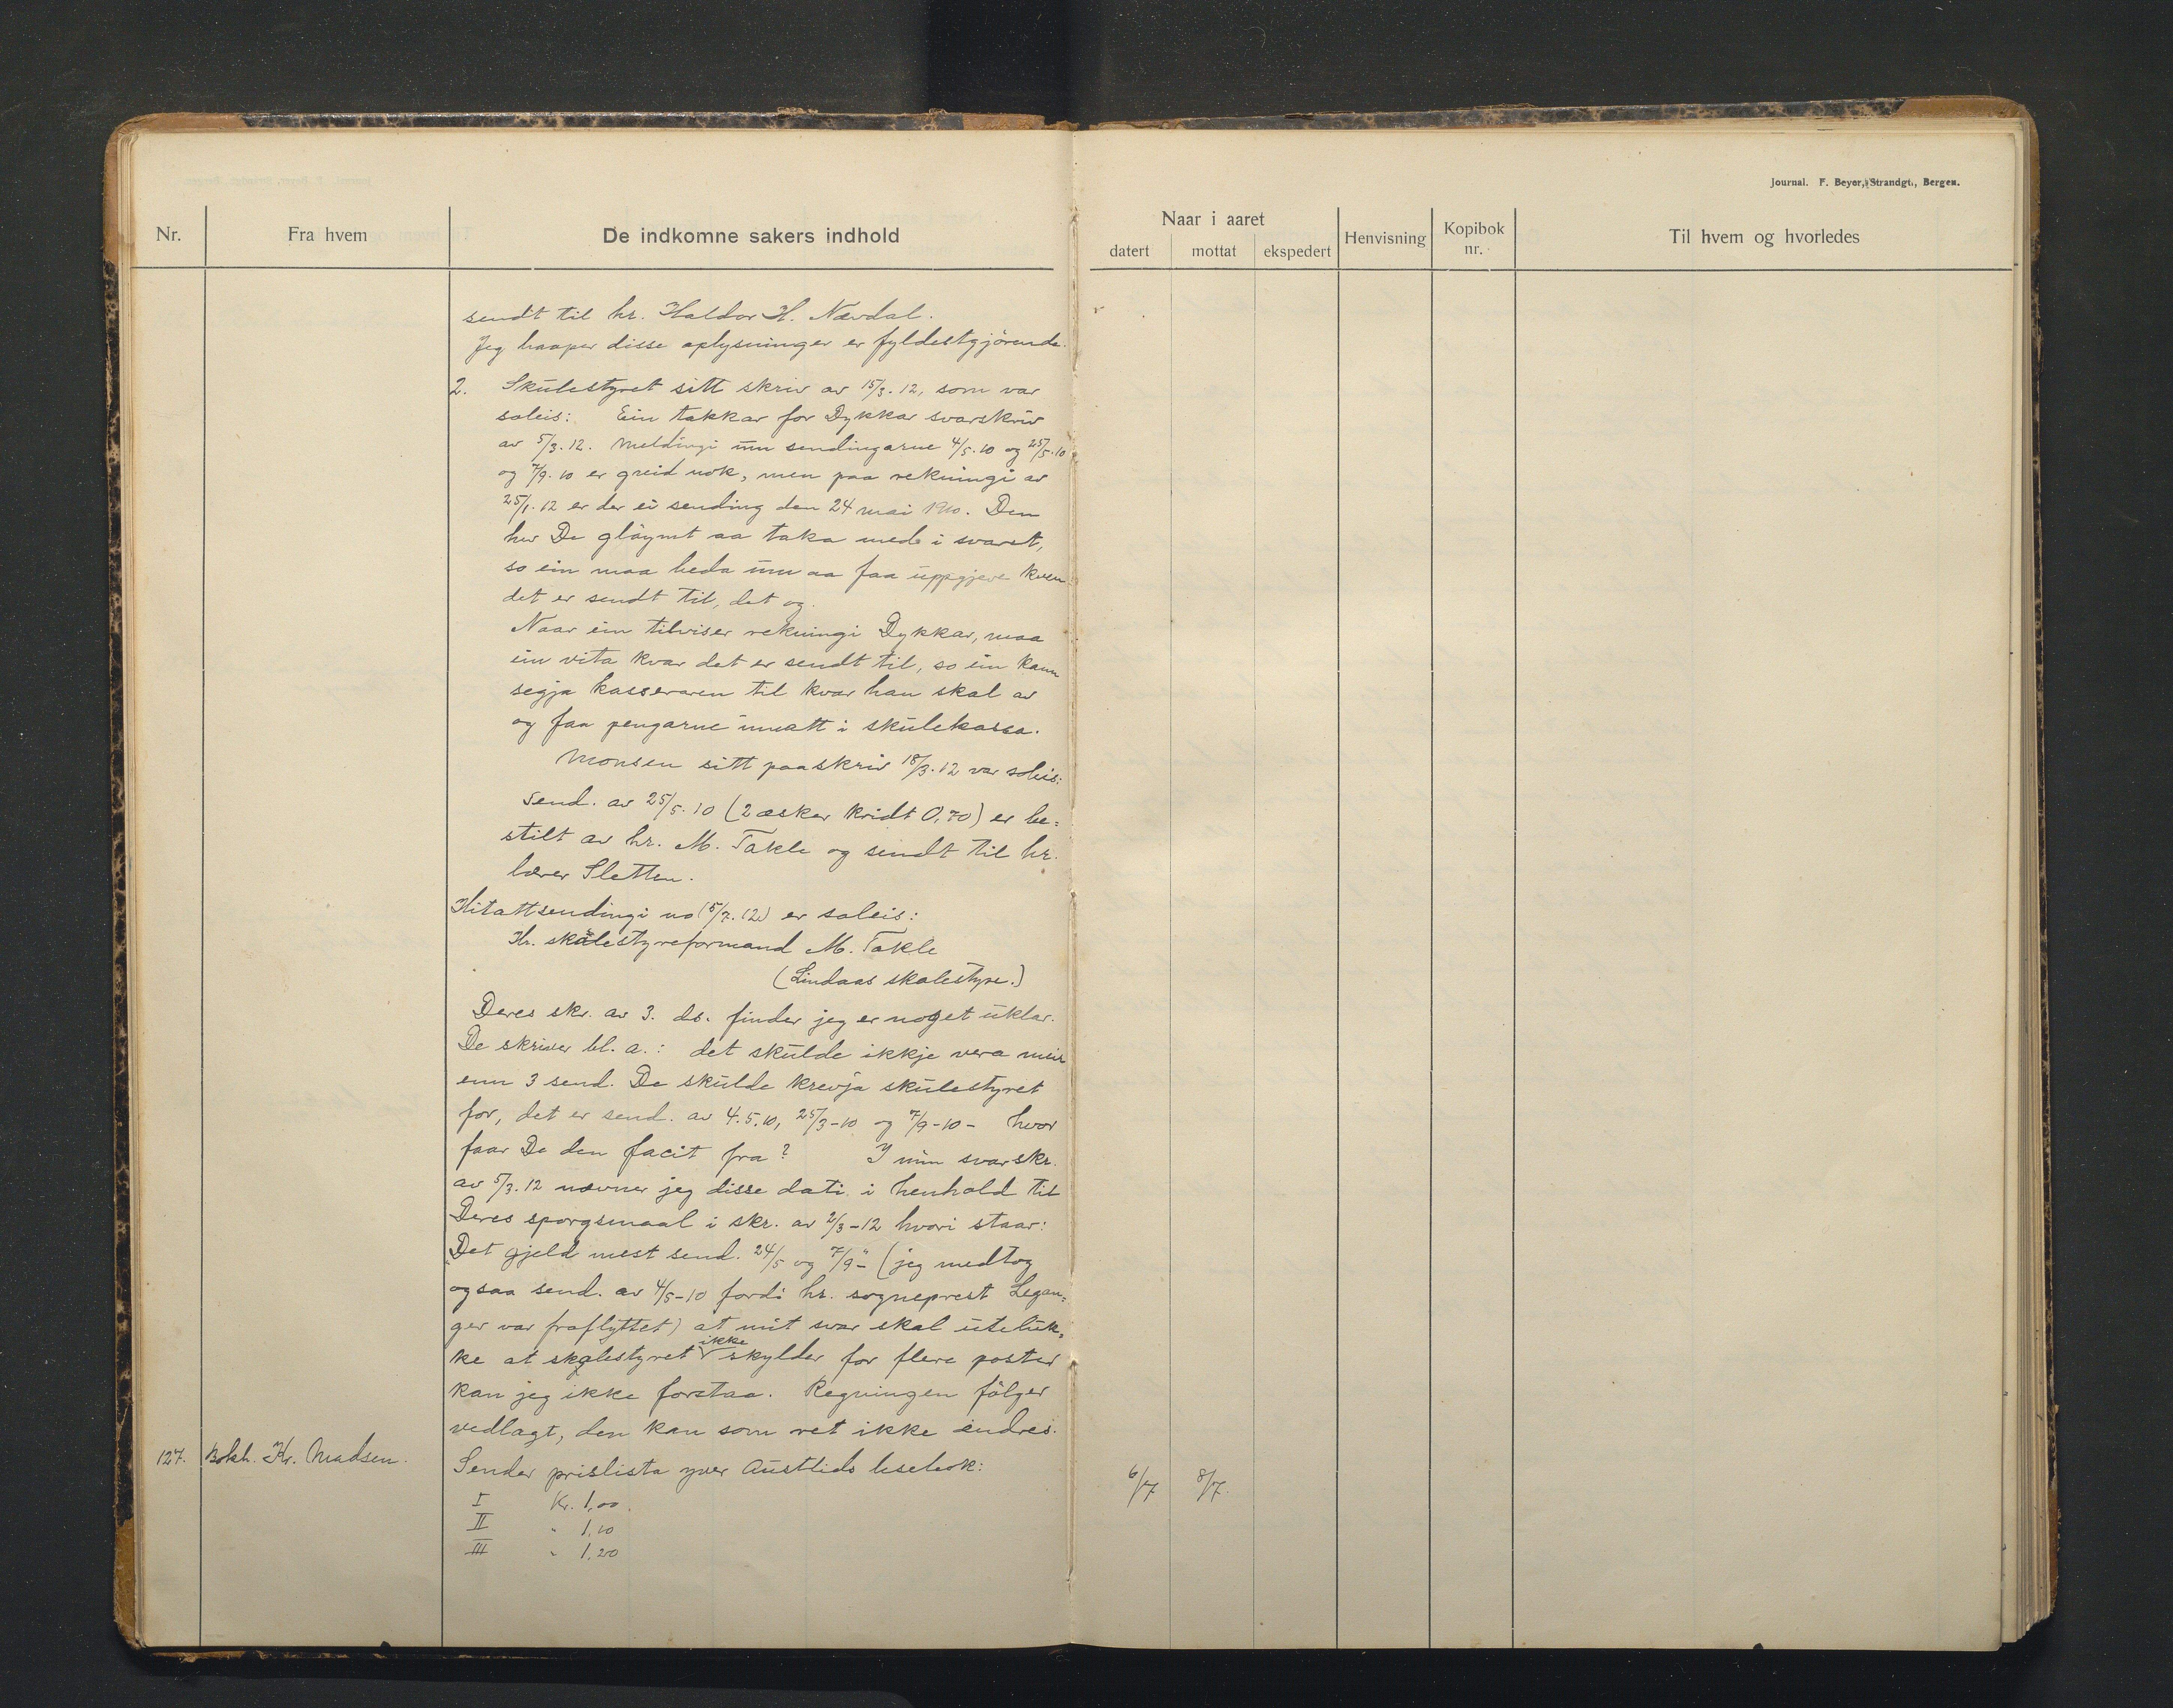 Journal. F. Beyer, Strandgt., Bergen.
Nr. Fra hvem De indkomne sakers indhold
Naar i aaret
datert mottat ekspedert Henvisning Kopibok nr. Til hvem og hvorledes
sendt til hr. Haldor H. Nævdal.
Jeg haaper disse oplysninger er fyldestgjörende.
2. Skulestyret sitt skriv av 15/3.12, som var
soleis: Ein takkar for Dykkar svarskriv
av 5/3.12. Meldingi um sendingarne 4/5.10 og 25/5.10
og 7/9.10 er greid nok, men paa rekningi av
25/1.12 er der ei sending den 24 mai 1910. Den
hev De gløymt aa taka med i svaret,
so ein maa beda um aa faa uppgjeve kven
det er sendt til, det og.
Naar ein tilviser rekningi Dykkar, maa
ein vita kvar det er sendt til, so ein kann
segja kasseraren til kvar han skal av
og faa pengarne innatt i skulekassa.
Monsen sitt paaskriv 18/3.12 var soleis:
Send. av 25/5.10 (2 æsker kridt 0,70) er be=
stilt av hr. M. Takle og sendt til hr.
lærer Sletten.
Hitattsendingi no (5/7.12) er soleis:
Hr. skolestyreformand M. Takle
(Lindaas skolestyre.)
Deres skr. av 3. ds. finder jeg er noget uklar.
De skriver bl. a.: det skulde ikkje vera meir
enn 3 send. De skulde krevja skulestyret
for, det er send. av 4.5.10, 25/3-10 og 7/9-10 - hvor
faar De den facit fra? I min svarskr.
av 5/3.12 nævner jeg disse dati i henhold til
Deres spørgsmaal i skr. av 2/3-12 hvori staar:
"Det gjeld mest send. 24/5 og 7/9-" (jeg medtog
ogsaa send. av 4/5-10 fordi hr. sogneprest Legan=
ger var fraflyttet) at mit svar skal uteluk=
ikke
ke at skolestyret skylder for flere poster
kan jeg ikke forstaa. Regningen følger
vedlagt, den kan som ret ikke endres.
127. Bokh. Kr. Madsen. Sender prislista yver Austlids lesebok: 6/7 8/7.
I Kr. 1,00.
II " 1,10
III " 1,20